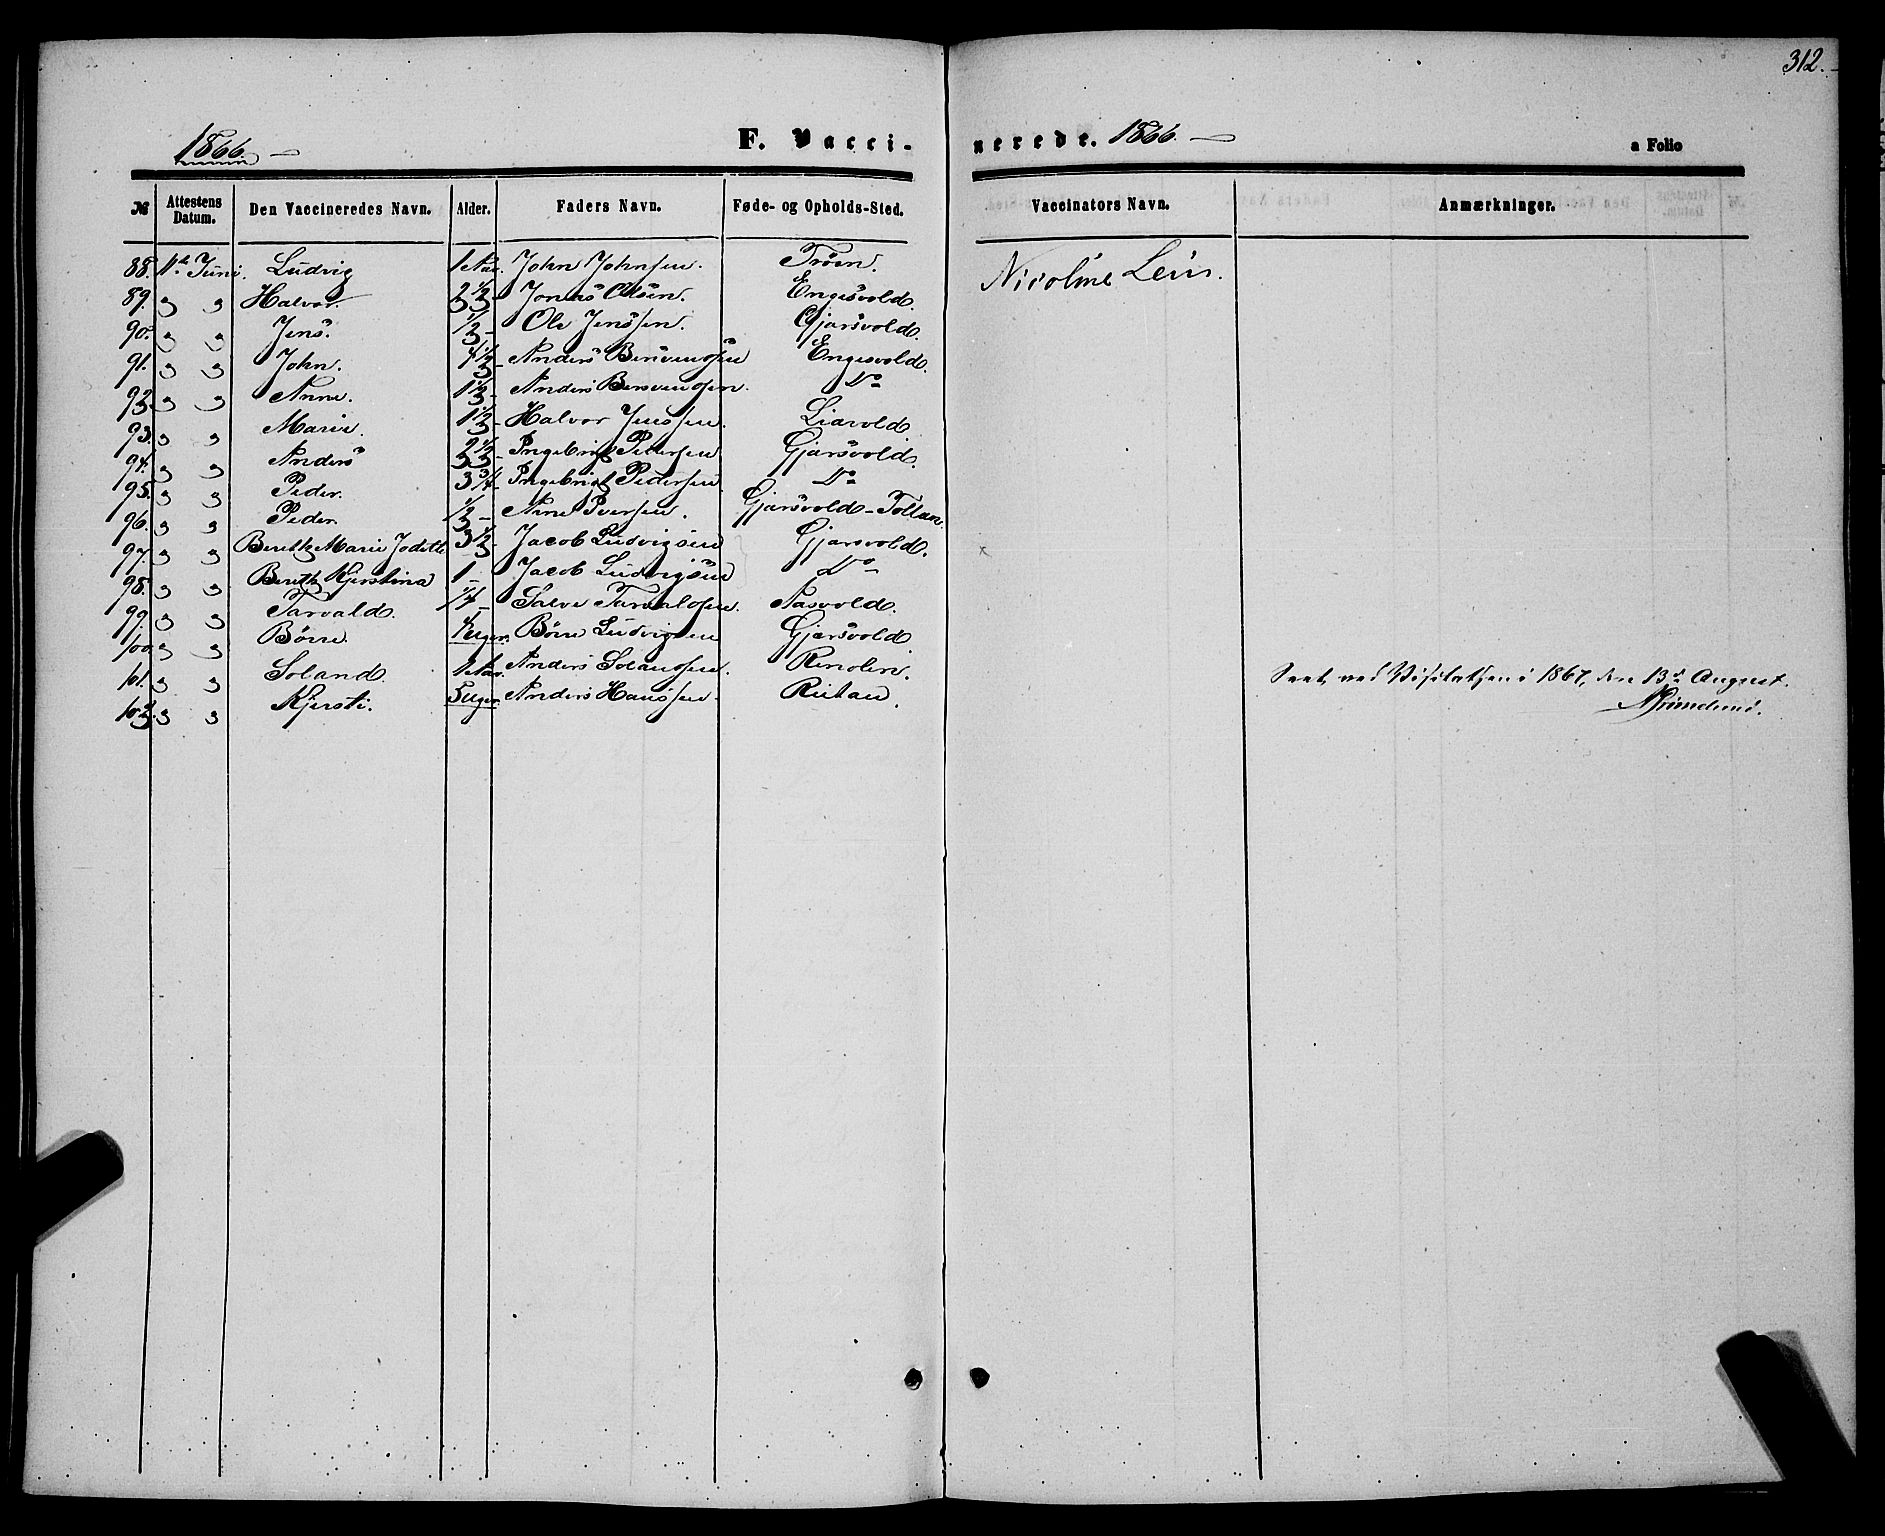 312.
1866.
F. Vacci-
nerede. 1866.
a Folio
№ Attestens Datum. Den Vaccineredes Navn. Alder. Faders Navn. Føde- og Opholds-Sted. Vaccinators Navn. Anmærkninger.
88. Juni. Ludvig 1 Aar. John Johnsen. Trøen. Nicoline Lein.
89. " " Halvor. 2 1/2 Jonas Olsen. Engesvold.
90. " " Jens. 1/2 - Ole Jenssen. Gjarsvold.
91. " " John. 4 1/2 - Anders Bersvendsen Engesvold.
92. " " Anne. 1 1/2 - Anders Bersvendsen. Do
93. " " Marie. 1 1/2 - Halvor Jenssen. Liavold
94. " " Anders 2 1/2 - Ingebrigt Pedersen Gjarsvold.
95. " " Peder. 3 3/4 - Ingebrigt Pedersen. Do
96. " " Peder. 1/2 - Arne Iversen. Gjarsvold-Tollan.
97. " " Bereth Marie Jodette 3 1/2 - Jacob Ludvigsen Gjarsvold.
98. " " Bereth Kjerstina 1 - Jacob Ludvigsen Do
99. " " Tarvald. 1/4 - Salve Tarvaldsen. Aasvold.
100. " " Børre. Uger. Børre Ludvigsen Gjarsvold
101. " " Soland. Aar. Anders Solandsen. Renolen.
102. " " Kjersti. 5 Uger. Anders Hanssen. Ristan.
Seet ved Visitatsen i 1867, den 13de August.